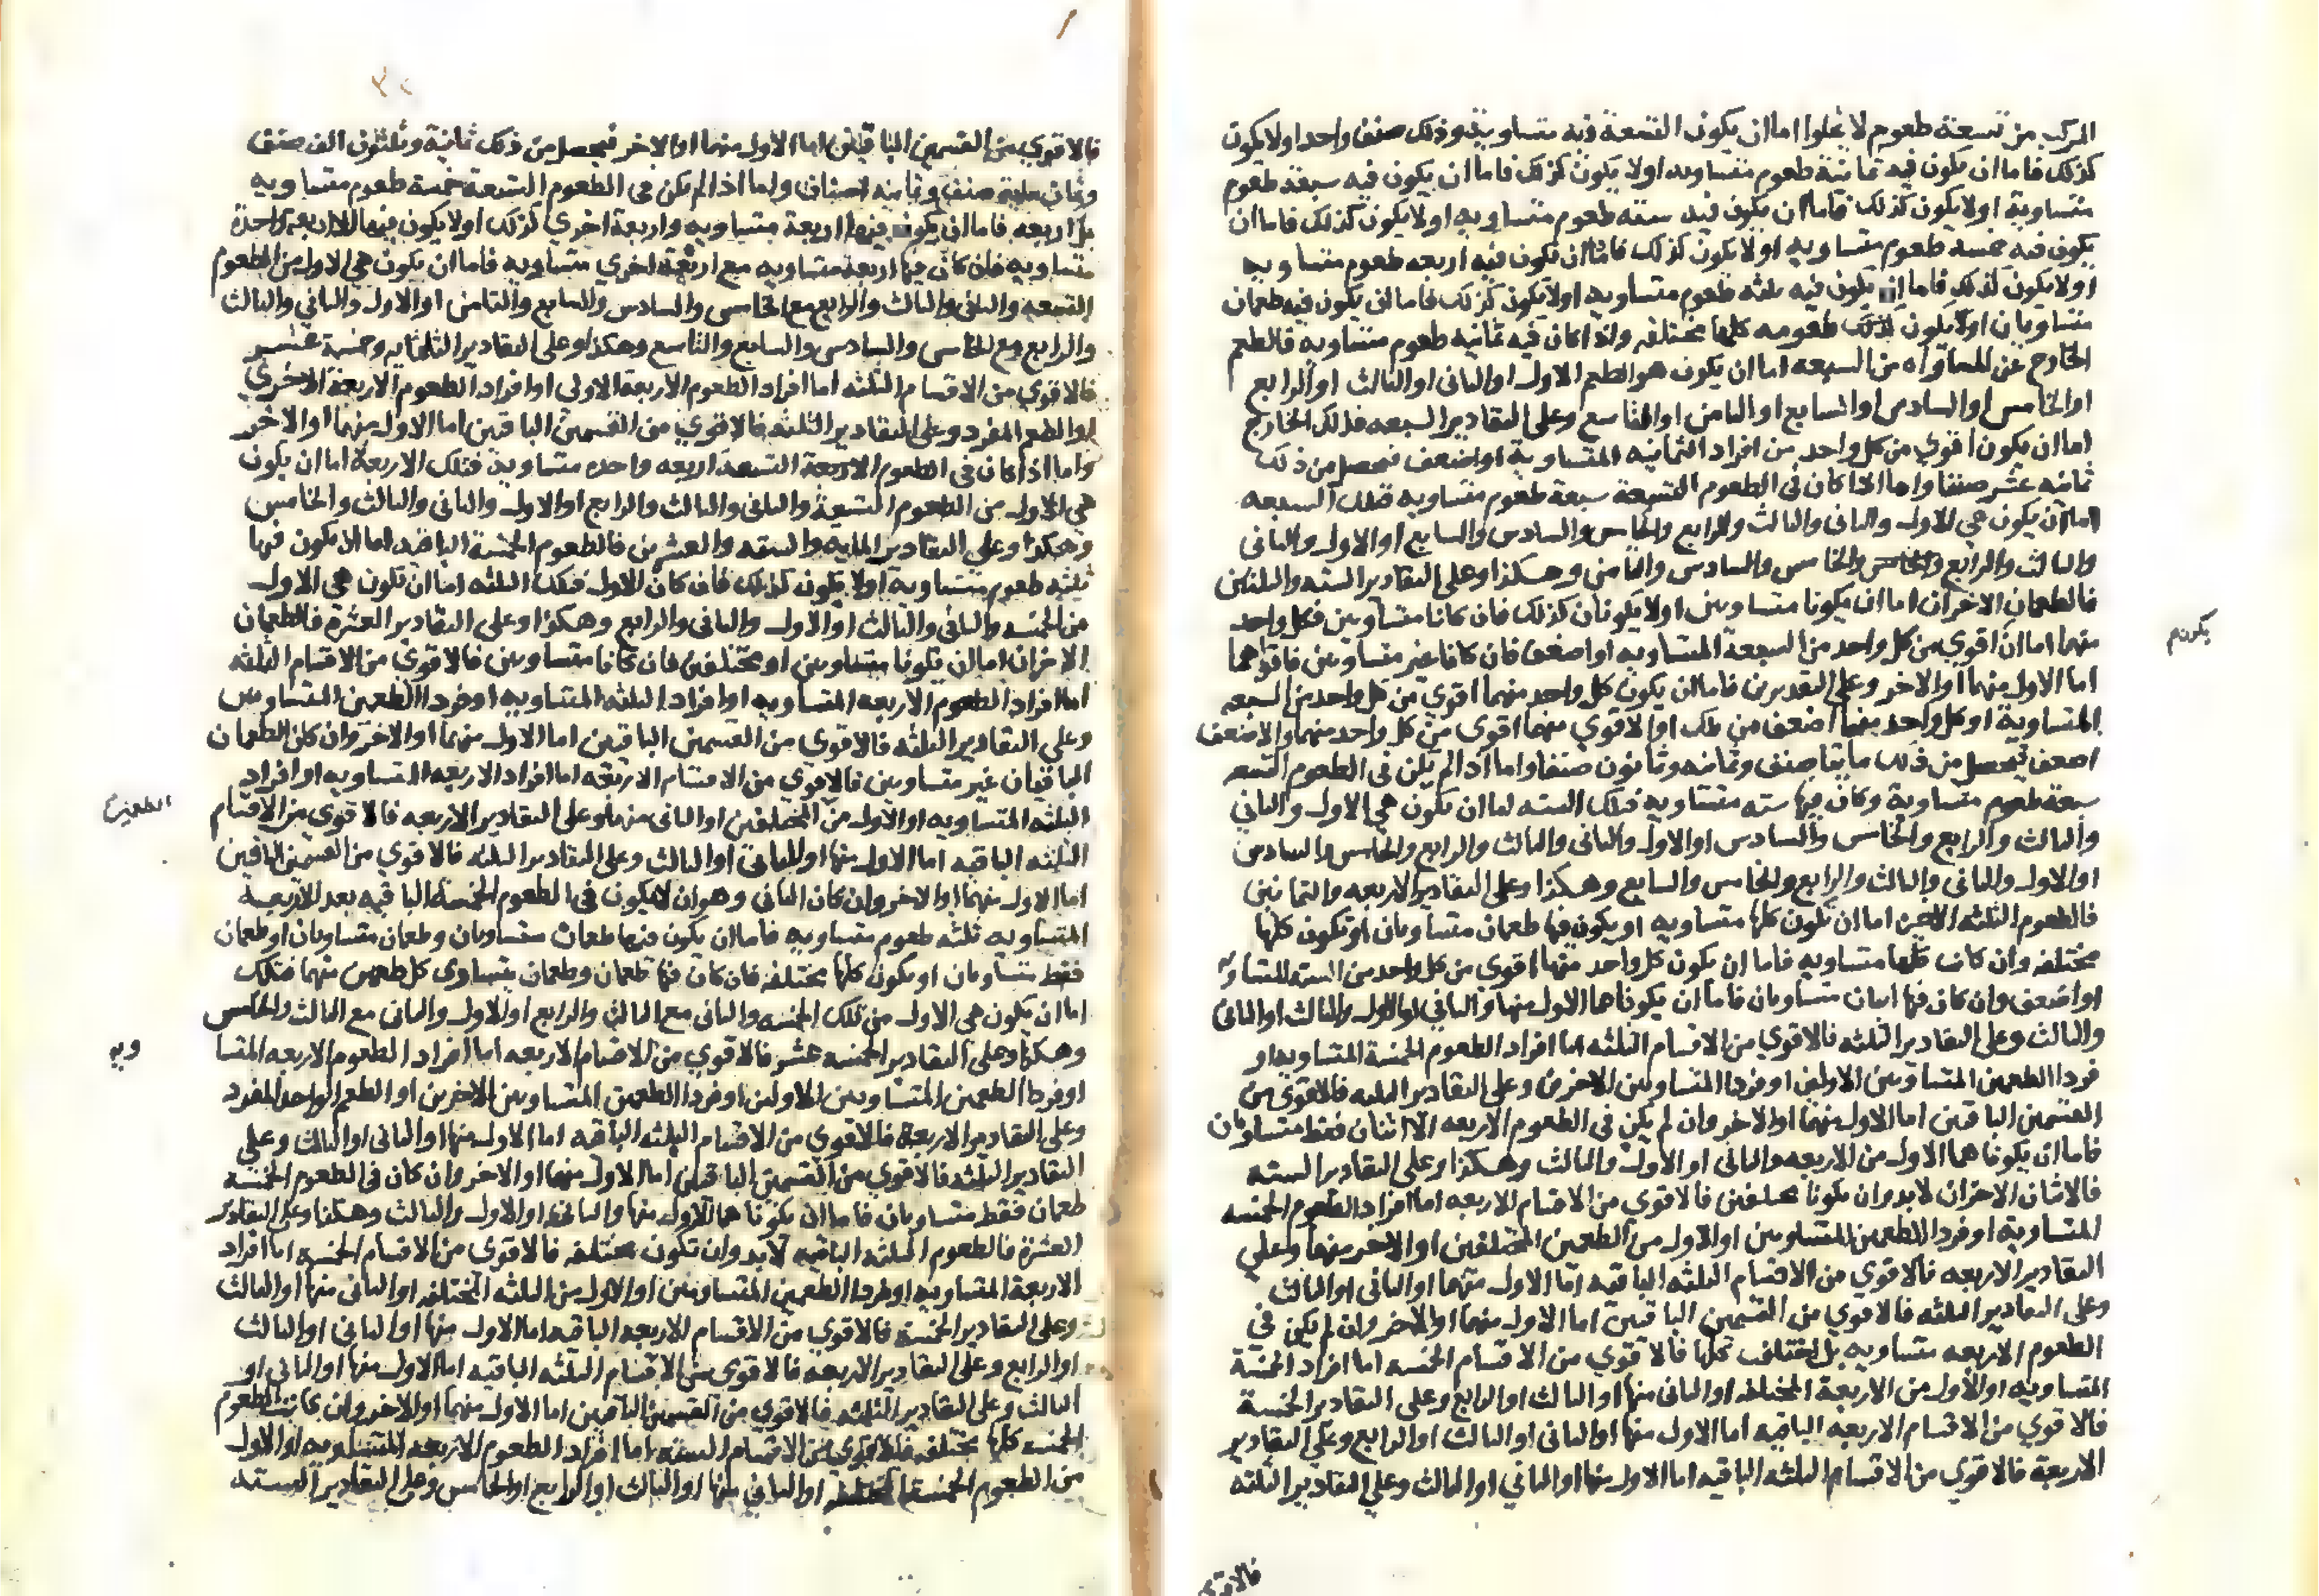 المركب من تسعة طعوم لا يخلوا اما ان يكون التسعة فيه متساوية وذلك صنف واحد او لا يكون
كذلك فاما ان يكون فيه ثمانية طعوم متساويه او لا يكون كذلك فاما ان يكون فيه سبعة طعوم
متساوية او لا يكون كذلك فاما ان يكون فيه سته طعوم متساويه او لا يكون كذلك فاما ان
يكون فيه خمسة طعوم متساويه او لا يكون كذلك فاما ان يكون فيه اربعه طعوم متساويه
او لا يكون كذلك فاما ان يكون فيه ثلثه طعوم متساويه او لا يكون كذلك فاما ان يكون فيه طعمان
متساويان او لا يكون كذلك طعومه كلها مختلفه واذا كان فيه ثمانيه طعوم متساويه فالطعم
الخارج عن المساواه من التسعه اما ان يكون هو الطعم الاول او الثانى او الثالث او الرابع
او الخامس او السادس او السابع او الثامن او التاسع وعلى التقادير التسعه فذلك الخارج
اما ان يكون اقوي من كل واحد من افراد الثمانيه المتساوية او اضعف فيحصل من ذلك
ثمانيه عشر صنفا واما اذا كان فى الطعوم التسعة سبعة طعوم متساويه فتلك السبعه
اما ان يكون هي الاول والثانى والثالث والرابع والخامس والسادس والسابع او الاول والثانى
والثالث والرابع والخامس والسادس والثامن وهكذا وعلى التقادير السته والثلثين
فالطعمان الاخران اما ان يكونا متساويين او لا يكونان كذلك فان كانا متساويين فكل واحد
منهما اما ان اقوي من كل واحد من السبعة المتساويه او اضعف فان كانا غير متساويين فاقواهما
اما الاول منهما او الاخر وعلى التقديرين فاما ان يكون كل واحد منهما اقوي من كل واحد من السبعه
المتساوية او كل واحد منهما اضعف من تلك او الاقوي منهما اقوي من كل واحد منهما والاضعف
اضعف فيحصل من ذلك مايتا صنف وثمانيه وثمانون صنفا واما اذا لم يكن فى الطعوم التسعه
سبعة طعوم متساوية وكان فيها سته متساويه فتلك السته اما ان يكون هي الاول والثاني
والثالث والرابع والخامس والسادس او الاول والثانى والثالث والرابع والخامس والسادس
او الاول والثانى والثالث والرابع والخامس والسابع وهكذا وعلى التقادير الاربعه والثمانين
فالطعوم الثلثه الاخيره اما ان تكون كلها متساويه او يكون فيها طعمان متساويان او تكون كلها
مختلفه وان كانت كلها متساويه فاما ان يكون كل واحد منهما اقوي من كل واحد من السته المتساويه
او اضعف وان كان فيها اثنان متساويان فاما ان يكونا هما الاول منها والثاني او الاول والثالث او الثانى
والثالث وعلى التقادير الثلثه فالاقوي من الاقسام الثلثه اما افراد الطعوم الخمسة المتساويه او
فردا الطعمين المتساويين الاولين او فردا المتساويين الاخرين وعلى التقادير الثلثه فالاقوى من
القسمين الباقيين اما الاول منهما او الاخر وان لم يكن فى الطعوم الاربعه الا اثنان فقط متساويان
فاما ان يكونا هما الاول من الاربعه والثانى او الاول والثالث وهكذا وعلى التقادير السته
فالاثنان الاخران لا بد وان يكونا مختلفين فالاقوى من الاقسام الاربعه اما افراد الطعوم الخمسه
المتساوية او فردا الطعمين المتساويين او الاول من الطعمين المختلفين او الاخر منهما وعلي
التقادير الاربعه فالاقوي من الاقسام الثلثه الباقيه اما الاول منهما او الثانى او الثالث
وعلى التقادير الثلثه فالاقوي من القسمين الباقيين اما الاول منهما او الاخر وان لم يكن في
الطعوم الاربعه متساويه بل اختلفت كلها فالاقوي من الاقسام الخمسه اما افراد الخمسة
المتساويه او الاول من الاربعة المختلفه او الثانى منها او الثالث او الرابع وعلى التقادير الخمسة
فالاقوي من الاقسام الاربعه الباقيه اما الاول منها او الثانى او الثالث او الرابع وعلى التقادير
الاربعة فالاقوي من الاقسام الثلثه الباقيه اما الاول منها او الثاني او الثالث وعلي التقادير الثلثه
فالاقوي
يكون م
فالاقوي من القسمين الباقيين اما الاول منهما او الاخر فيحصل من ذلك ثمانية وثلثون الف صنف
وثمان مايه صنف وثمانيه اصناف واما اذا لم يكن فى الطعوم التسعة خمسة طعوم متساويه
بل اربعه فاما ان يكون فيها اربعة متساويه واربعة اخري كذلك او لا يكون فيها الا اربعه واحدة
متساويه فان كان فيها اربعة متساويه مع اربعة اخري متساويه فاما ان يكون هي الاول من الطعوم
التسعه والثانى والثالث والرابع مع الخامس والسادس والسابع والثامن او الاول والثاني والثالث
والرابع مع الخامس والسادس والسابع والتاسع وهكذا وعلى التقادير الثلثمايه وخمسة عشر
فالاقوي من الاقسام الثلثه اما افراد الطعوم الاربعة الاولى او افراد الطعوم الاربعة الاخري
او الطعم المفرد وعلى التقادير الثلثه فالاقوي من القسمين الباقيين اما الاول منهما او الاخر
واما اذا كان فى الطعوم الاربعة التسعة اربعه واحده متساوية فتلك الاربعة اما ان يكون
هي الاول من الطعوم التسعة والثانى والثالث والرابع او الاول والثانى والثالث والخامس
وهكذا وعلي التقادير المايه والسته والعشرين فالطعوم الخمسة الباقيه اما ان يكون فيها
ثلثه طعوم متساوية او لا يكون كذلك فان كان الاول فتلك الثلثه اما ان تكون هى الاول
من الخمسه والثانى والثالث او الاول والثانى والرابع وهكذا وعلى التقادير العشرة فالطعمان
الاخران اما ان يكونا متساويين او مختلفين فان كانا متساويين فالاقوي من الاقسام الثلثه
اما افراد الطعوم الاربعه المتساويه او افراد الثلثه المتساويه او فردا الطعمين المتساويين
وعلي التقادير الثلثه فالاقوي من القسمين الباقيين اما الاول منهما او الاخر وان كان الطعمان
الباقيان غير متساويين فالاقوي من الاقسام الاربعه اما افراد الاربعه المتساويه او افراد
الثلثه المتساويه او الاول من المختلفين او الثانى منهما وعلى التقادير الاربعه فالاقوي من الاقسام
الثلثه الباقيه اما الاول منها او الثانى او الثالث وعلى التقادير الثلثه فالاقوي من القسمين الباقيين
اما الاول منهما او الاخر وان كان الثانى وهو ان لا يكون فى الطعوم الخمسة الباقيه بعد الاربعة
المتساويه ثلثه طعوم متساويه فاما ان يكون فيها طعمان متساويان وطعمان متساويان او طعمان
فقط متساويان او يكون كلها مختلفه فان كان فيها طعمان وطعمان يتساوى كل طعمين منهما فتلك
اما ان يكون هى الاول من تلك الخمسه والثانى مع الثالث والرابع او الاول والثانى مع الثالث والخامس
وهكذا وعلى التقادير الخمسه عشر فالاقوي من الاقسام الاربعه اما افراد الطعوم الاربعه المتسا
او فردا الطعمين المتساويين الاولين او فردا الطعمين المتساويين الاخرين او الطعم الواحد المفرد
وعلى التقادير الاربعة فالاقوي من الاقسام الثلثه الباقيه اما الاول منها او الثانى او الثالث وعلي
التقادير الثلثه فالاقوي من القسمين الباقيين اما الاول منهما او الاخر وان كان فى الطعوم الخمسة
طعمان فقط متساويان فاما ان يكونا هما الاول منها والثانى او الاول والثالث وهكذا وعلى التقادير
العشرة فالطعوم الثلثه الباقيه لا بد وان تكون مختلفه فالاقوى من الاقسام الخمسه اما افراد
الاربعة المتساويه او فردا الطعمين المتساويين او الاول من الثلثه المختلفه او الثانى منها او الثالث
وعلى التقادير الخمسة فالاقوي من الاقسام الاربعه الباقيه اما الاول منها او الثانى او الثالث
او الرابع وعلى التقادير الاربعه فالاقوى من الاقسام الثلثه الباقيه اما الاول منها او الثانى او
الثالث وعلى التقادير الثلثه فالاقوي من القسمين الباقيين اما الاول منهما او الاخر وان كانت الطعوم
الخمسه كلها مختلفه فالاقوى من الاقسام السته اما افراد الطعوم الاربعه المتساويه او الاول
من الطعوم الخمسة المختلفة او الثاني منها او الثالث او الرابع او الخامس وعلى التقادير السته
الطعمين
ويه